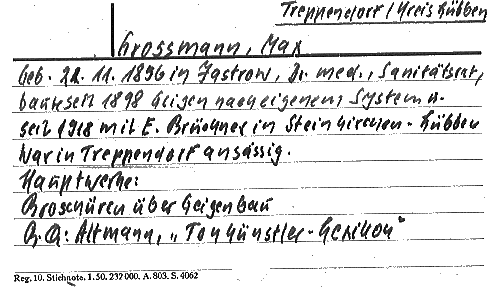 Treppendorf / Kreis Lübben
Grossmann, Max
Geb. 22. 11. 1896 in Jastrow, Dr. med., Sanitätsrat,
baute seit 1898 Geigen nach eigenem System u.
seit 1918 mit E. Brückner in Steinkirchen - Lübben
War in Treppendorf ansässig.
Hauptwerke:
Broschüren über Geigenbau
B.Q: Altmann, „Tonkünstler-Lexikon“
Reg. 10. Stichnote. 1. 50. 232 000. A. 803. S. 4062